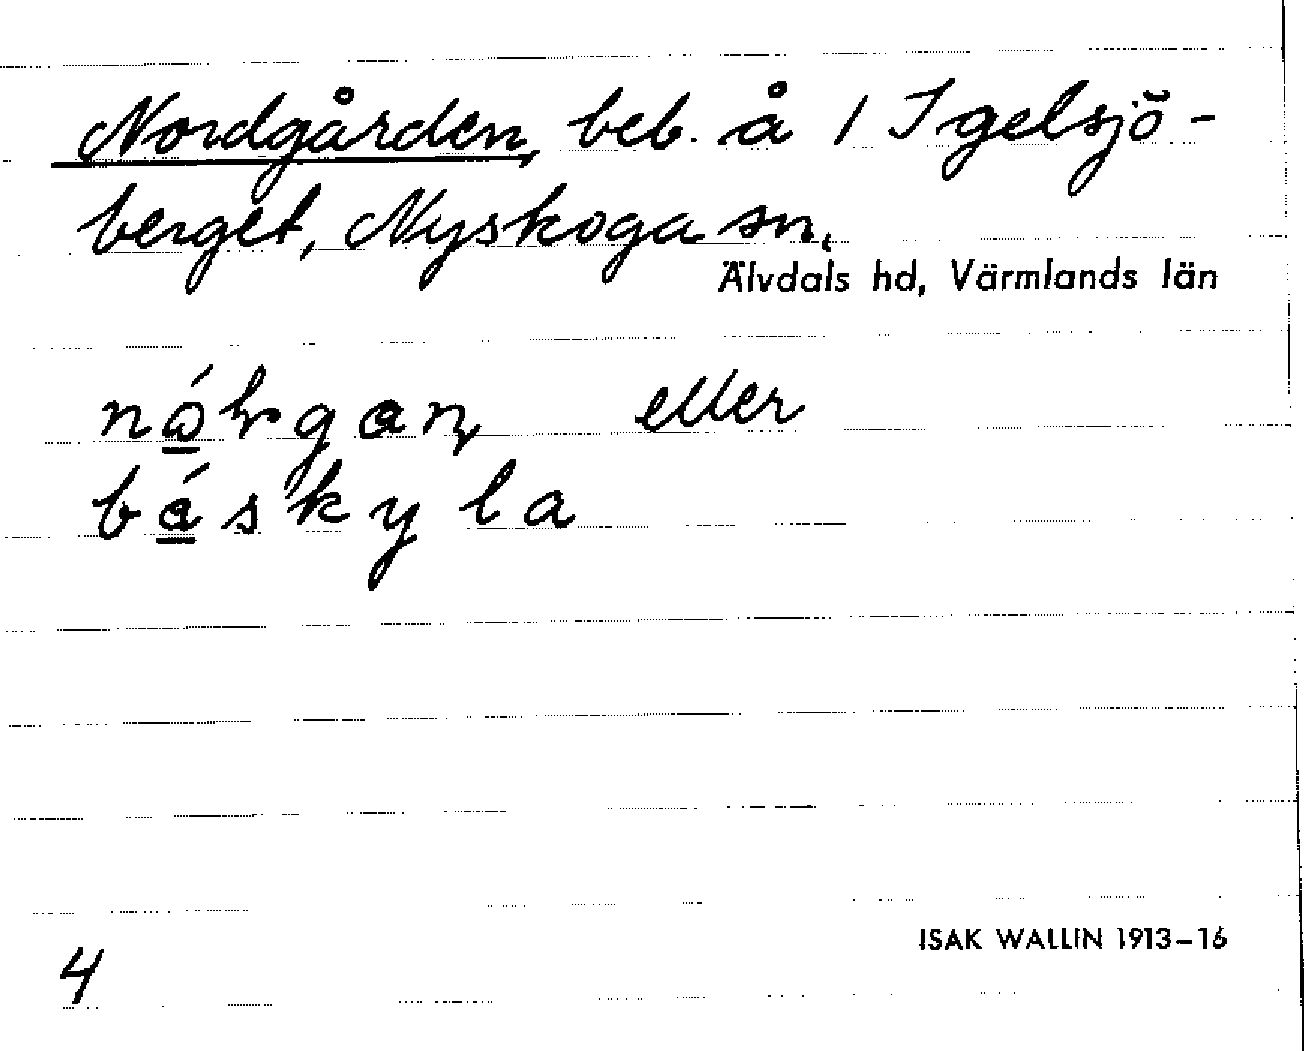 Nordgården, beb. å 1 Igelsjö-
berget, Nyskoga sn,
Älvdals hd, Värmlands län
nó̲rgan eller
bá̲skyla
ISAK WALLIN 1913-16
4